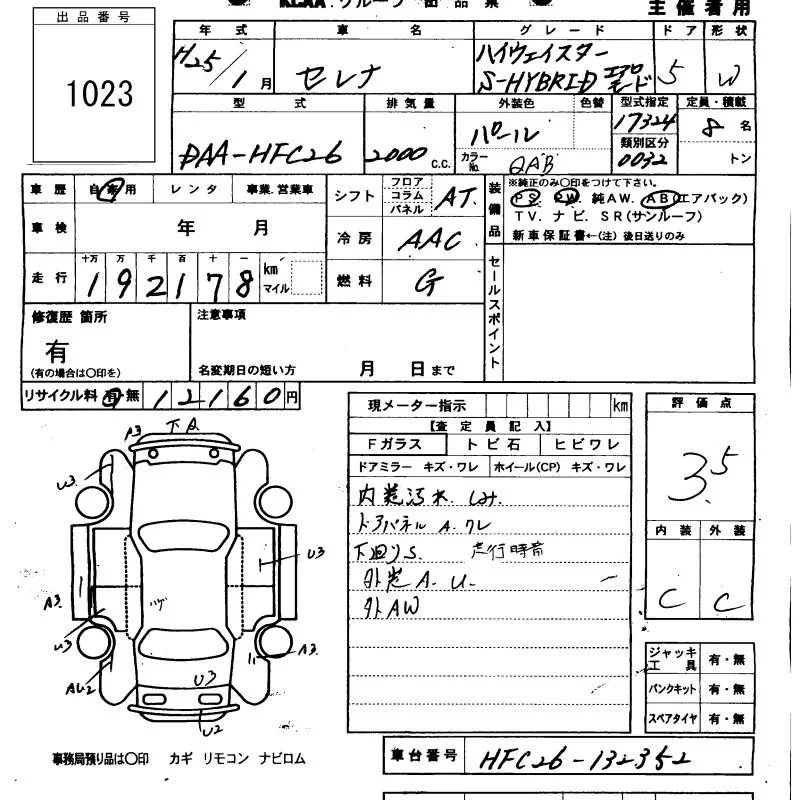 KCAA.グループ 出品票
主催者用
出品番号
1023
年式 車名 グレード ドア 形状
H25/1月 セレナ ハイウェイスター S-HYBRID エアロモード 5 W
型式 排気量 外装色 色替 型式指定 定員・積載
17324 8名
DAA-HFC26 2000 C.C. パール
類別区分
カラーNo. QAB 0032 トン
車歴 自家用 レンタ 事業.営業車
シフト フロア コラム パネル AT
装備品
※純正のみ〇印をつけて下さい。
PS PW 純AW. AB(エアバック)
TV. ナビ. SR(サンルーフ)
新車保証書←(注)後日送りのみ
車検 年 月
冷房 AAC
走行 十万 万 千 百 十 一
192178 km マイル
燃料 G
セールスポイント
修復歴 箇所
有
(有の場合は〇印を)
注意事項
名変期日の短い方 月 日まで
リサイクル料 有・無 12160円
現メーター指示 km
【査定員記入】
Fガラス トビ石 ヒビワレ
ドアミラー キズ・ワレ ホイール(CP) キズ・ワレ
内装汚れ.しみ.
ドアパネル A.ワレ
下回りS.
外装 A. U.
外AW
評価点
3.5
内装 外装
C C
A3 下A
U3
U3
A3.
U3
AU2
A3.
U3
U2
ジャッキ工具 有・無
パンクキット 有・無
スペアタイヤ 有・無
事務局預り品は〇印 カギ リモコン ナビロム
車台番号 HFC26-132352